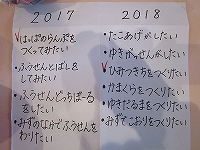 2017
✓はっぱのらんぷを
つくってみたい
・ふうせんとばしを
してみたい
・ふうせんどっちぼーる
をしたい
・みずのなかでふうせんを
わりたい
2018
・たこあげがしたい
・ゆきがっせんがしたい
✓ひみつきちをつくりたい
・かまくらをつくりたい
・ゆきだるまをつくりたい
・みずでこおりをつくりたい